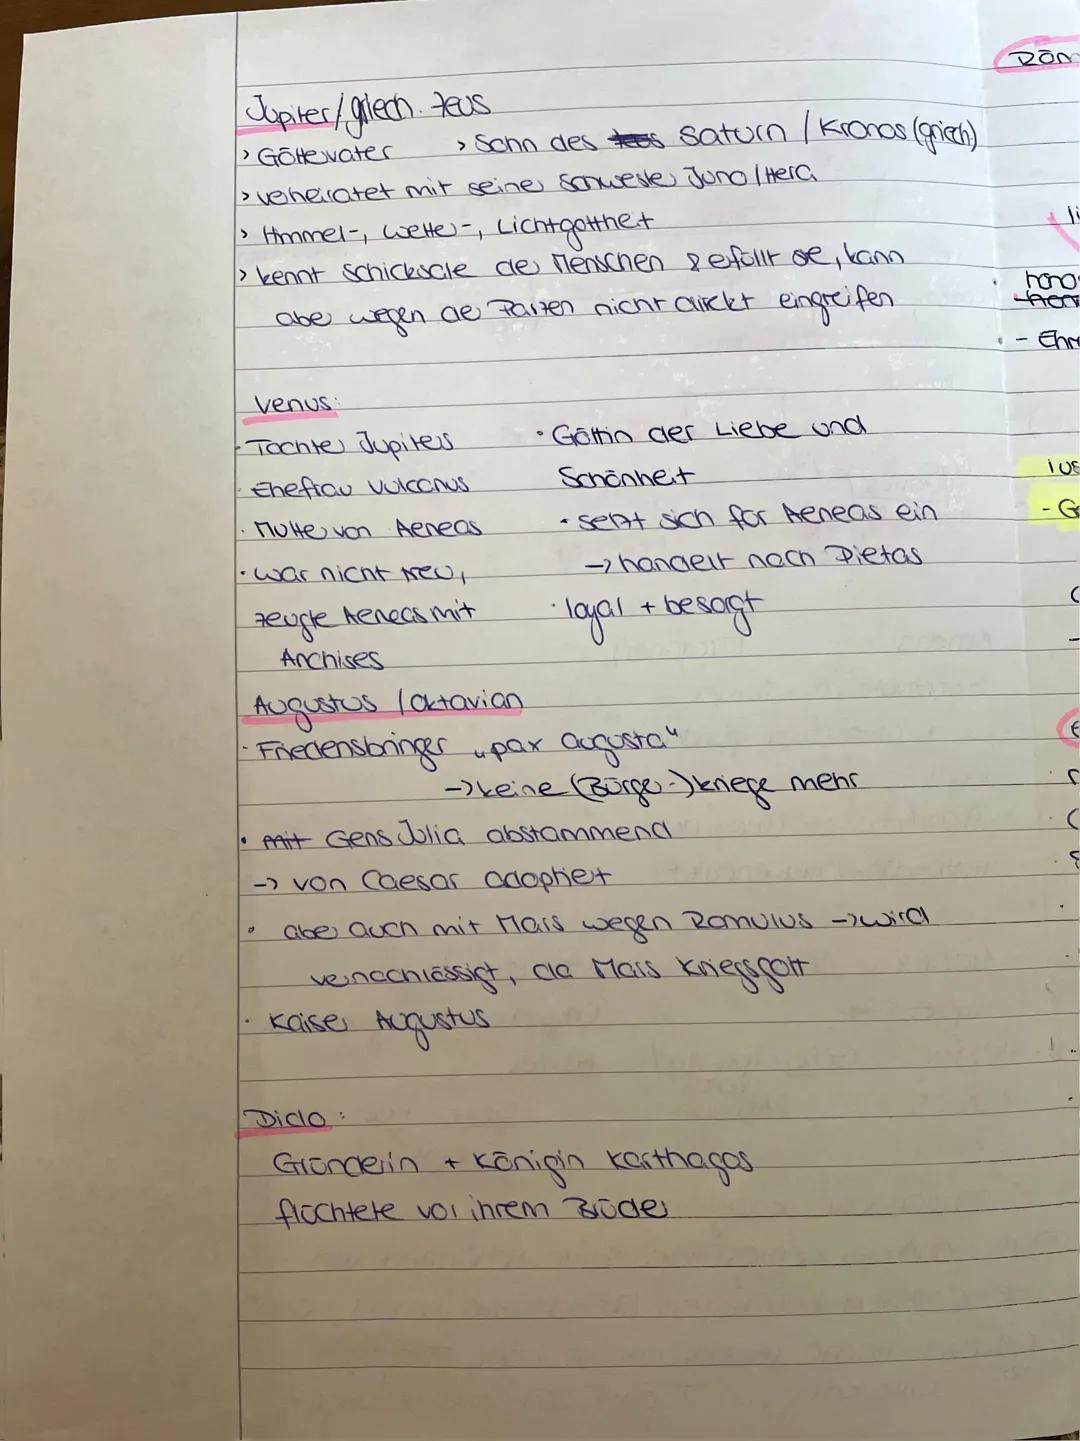 Röm
Jupiter/griech. Zeus
> Göttervater > Sohn des Saturn / Kronos (griech)
> verheiratet mit seiner Schwester Juno/Hera
> Himmel-, Wetter-, Lichtgottheit
> kennt Schicksale der Menschen & erfüllt sie, kann
aber wegen der Parzen nicht direkt eingreifen
hono
- Ehr
Venus:
· Tochter Jupiters
· Ehefrau Vulcanus
· Mutter von Aeneas
· war nicht treu,
zeugte Aeneas mit
Anchises
· Göttin der Liebe und
Schönheit
· setzt sich für Aeneas ein
-> handelt nach Pietas
· loyal + besorgt
ius
- Ge
Augustus / Oktavian
· Friedensbringer „pax augusta“
-> keine (Bürger-)kriege mehr
· mit Gens Julia abstammend
-> von Caesar adoptiert
· aber auch mit Mars wegen Romulus -> wird
vernachlässigt, da Mars Kriegsgott
· Kaiser Augustus
Dido:
Gründerin + Königin Karthagos
flüchtete vor ihrem Bruder